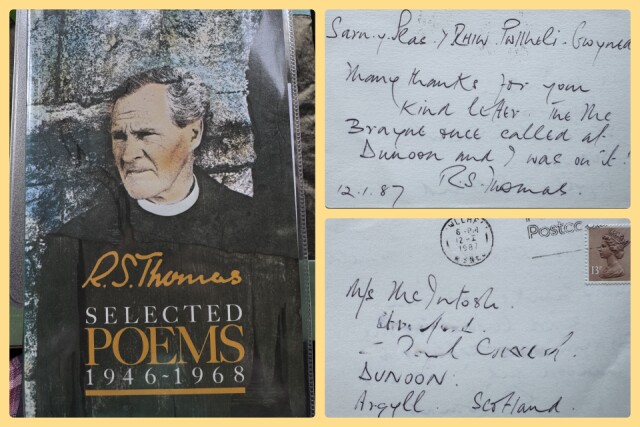 R.S. Thomas
SELECTED
POEMS
1946-1968
Sarn-y-Plas. Y RHIW. Pwllheli. Gwynedd
Many thanks for your
kind letter. The Mc
Brayne once called at
Dunoon and I was on it!
R.S. Thomas.
12.1.87
6-PM
1987
Postco
13P
M/s McIntosh.
Crescent.
DUNOON.
Argyll. Scotland.